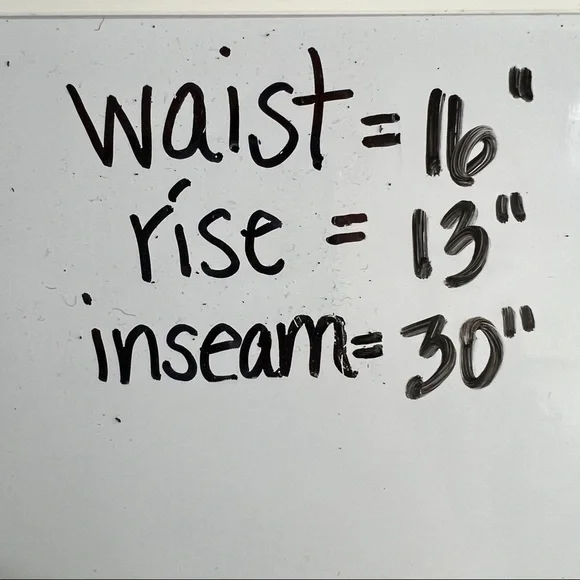 waist = 16"
rise = 13"
inseam = 30"